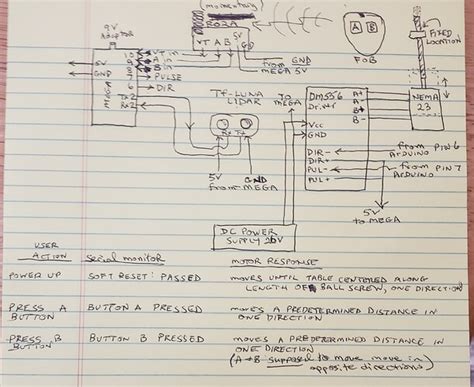 (momentary)
9V
Adaptor
VT A B 5V
GND
from
MEGA
A B
FOB
FIXED
LOCATION
5V
GND
MEGA
VT in
A in
B in
PULSE
DIR
7
6
Tx2
Rx2
TF-LUNA
LIDAR
Rx Tx
5V
GND
from MEGA
To
MEGA
DM556
Driver
A+
A-
B+
B-
NEMA
23
Vcc
GND
DIR-
DIR+
PUL-
PUL+
from PIN 6
Arduino
from PIN 7
Arduino
5V
to MEGA
DC POWER
SUPPLY 20V
USER
ACTION Serial monitor MOTOR RESPONSE
POWER UP SOFT RESET: PASSED MOVES UNTIL TABLE CENTERED ALONG
LENGTH OF BALL SCREW, ONE DIRECTION
PRESS A BUTTON A PRESSED MOVES A PREDETERMINED DISTANCE IN
BUTTON ONE DIRECTION
PRESS B BUTTON B PRESSED MOVES A PREDETERMINED DISTANCE IN
BUTTON ONE DIRECTION
(A → B supposed to move move in
opposite directions)